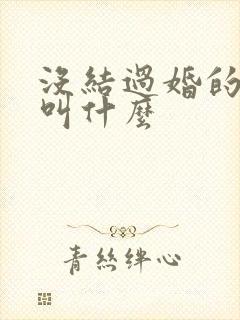 沒結過婚的
叫什麼
青絲絆心